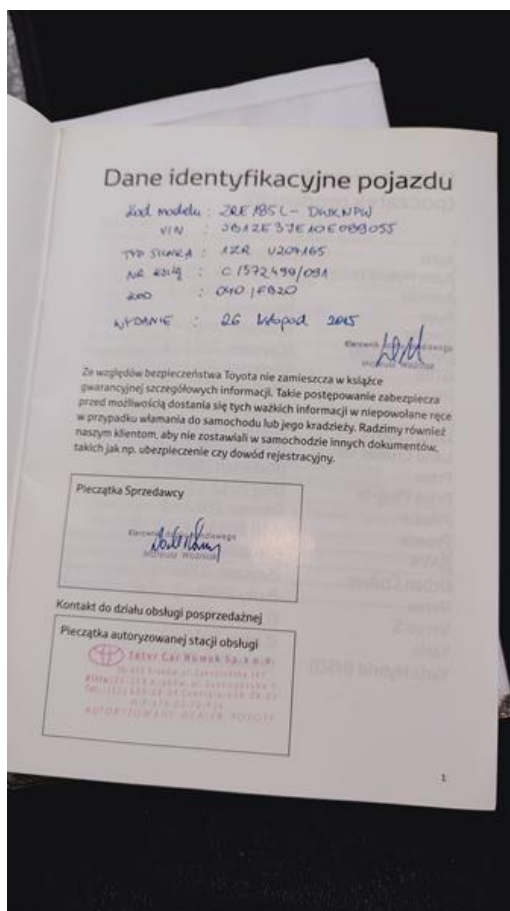 Dane identyfikacyjne pojazdu
Kod modelu : ZRE 185L - DWKNPW
VIN : SB1ZE3JE10E099055
TYP SILNIKA : 1ZR U207165
NR :
KOD : 040 / FB20
WYDANIE : 26 listopad 2015
Kierownik
Mateusz Woźniak
Ze względów bezpieczeństwa Toyota nie zamieszcza w książce
gwarancyjnej szczegółowych informacji. Takie postępowanie zabezpiecza
przed możliwością dostania się tych ważkich informacji w niepowołane ręce
w przypadku włamania do samochodu lub jego kradzieży. Radzimy również
naszym klientom, aby nie zostawiali w samochodzie innych dokumentów,
takich jak np. ubezpieczenie czy dowód rejestracyjny.
Pieczątka Sprzedawcy
Kierownik
Mateusz Woźniak
Kontakt do działu obsługi posprzedażnej
Pieczątka autoryzowanej stacji obsługi
Inter Car Nowak Sp.z o.o.
AUTORYZOWANY DEALER TOYOTY
1